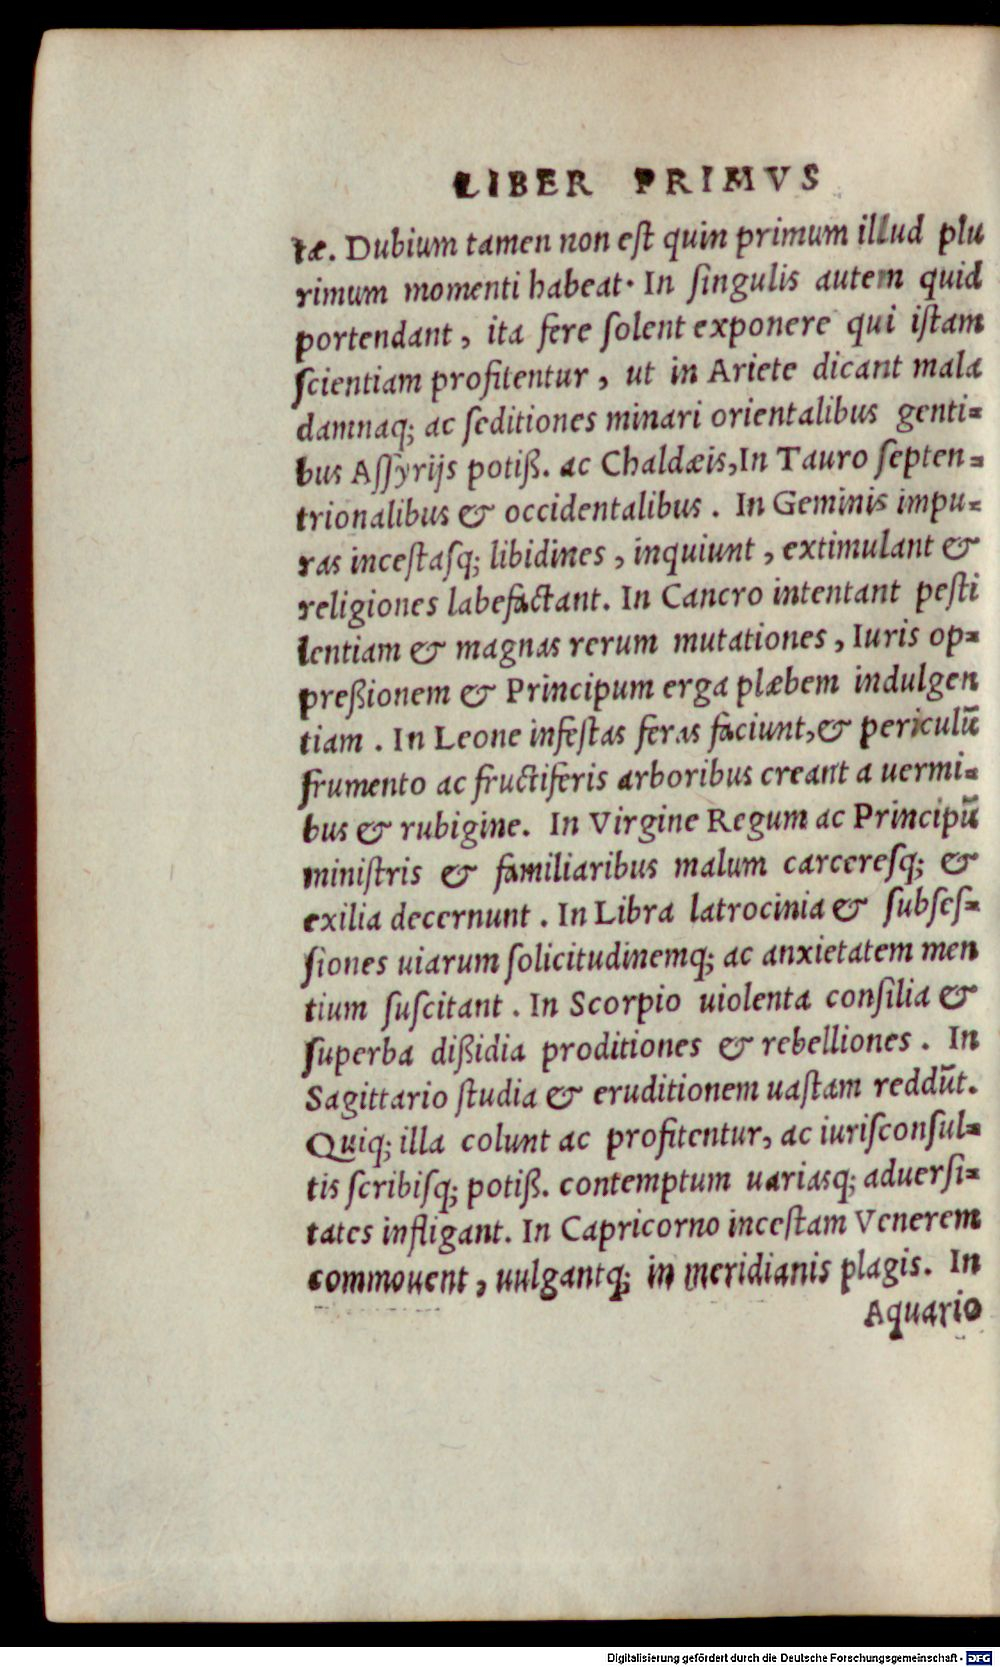 LIBER PRIMVS
tæ. Dubium tamen non eſt quin primum illud plu
rimum momenti habeat. In ſingulis autem quid
portendant, ita fere ſolent exponere qui iſtam
ſcientiam profitentur, ut in Ariete dicant mala
damnaq; ac ſeditiones minari orientalibus genti=
bus Aſſyrijs potiß. ac Chaldæis, In Tauro ſepten=
trionalibus & occidentalibus. In Geminis impu=
ras inceſtaſq; libidines, inquiunt, extimulant &
religiones labefactant. In Cancro intentant peſti
lentiam & magnas rerum mutationes, Iuris op=
preßionem & Principum erga plæbem indulgen
tiam. In Leone infeſtas feras faciunt, & periculū
frumento ac fructiferis arboribus creant a uermi=
bus & rubigine. In Virgine Regum ac Principū
miniſtris & familiaribus malum carcereſq; &
exilia decernunt. In Libra latrocinia & ſubſeſ=
ſiones uiarum ſolicitudinemq; ac anxietatem men
tium ſuſcitant. In Scorpio uiolenta conſilia &
ſuperba dißidia proditiones & rebelliones. In
Sagittario ſtudia & eruditionem uaſtam reddūt.
Quiq; illa colunt ac profitentur, ac iuriſconſul=
tis ſcribiſq; potiß. contemptum uariasq; aduerſi=
tates infligant. In Capricorno inceſtam Venerem
commouent, uulgantq; in meridianis plagis. In
Aquario
Digitalisierung gefördert durch die Deutsche Forschungsgemeinschaft - DFG